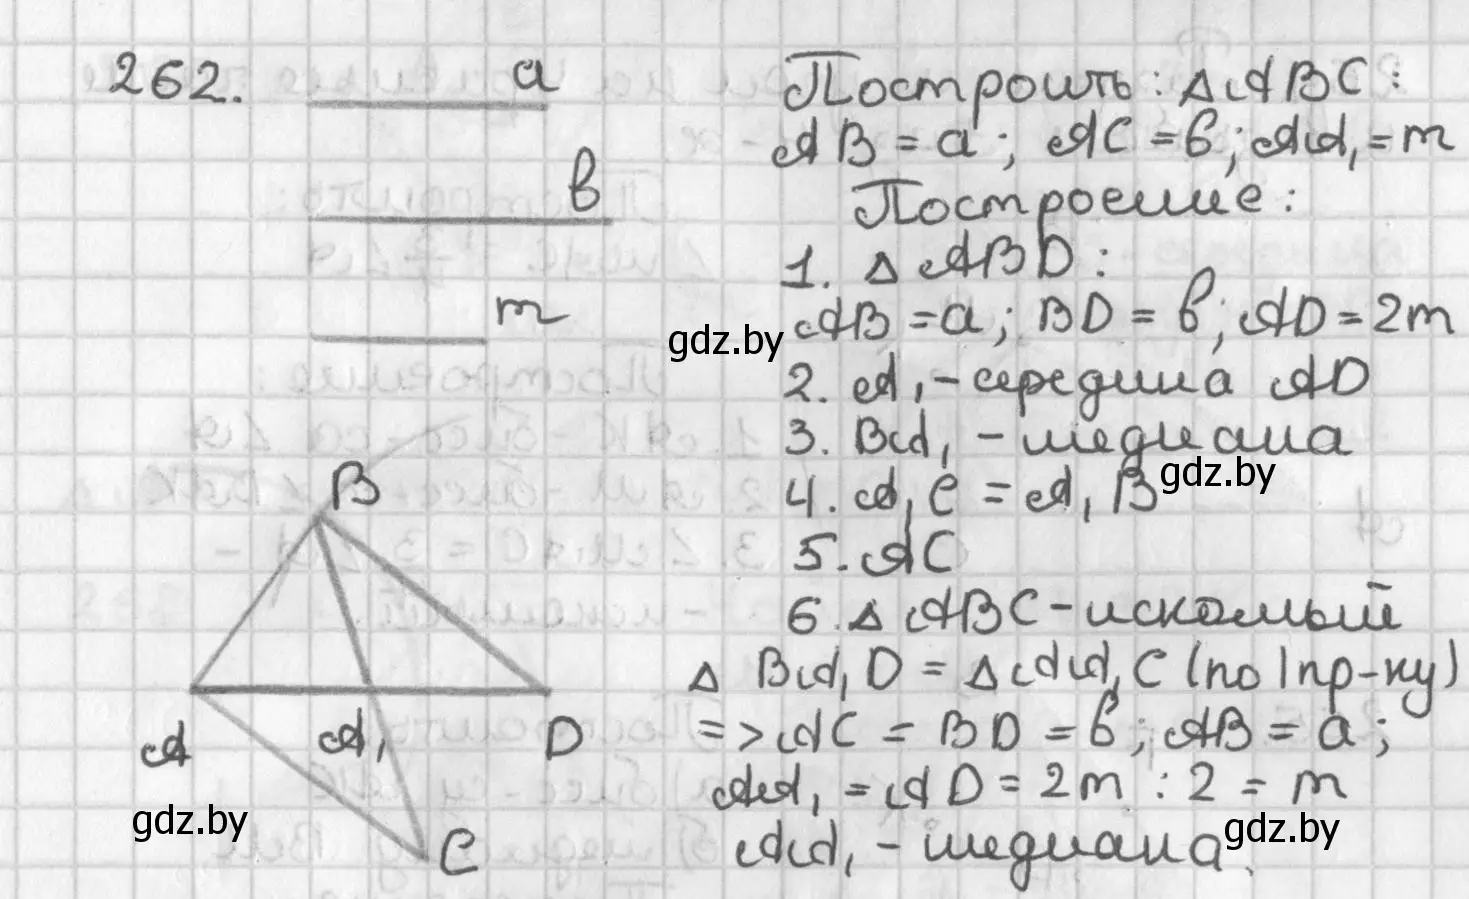 262.
a
в
m
Построить: △ABC:
AB = a; AC = в; AA₁ = m
Построение:
1. △ABD:
AB = a; BD = в; AD = 2m
gdz.by
2. A₁ - середина AD
3. BA₁ - медиана
gdz.by
4. A₁C = A₁B
5. AC
6. △ABC - искомый
△BA₁D = △AA₁C (по I пр-ку)
=> AC = BD = в; AB = a;
AA₁ = AD = 2m : 2 = m
AA₁ - медиана.
gdz.by
B
A
A₁
D
C
gdz.by